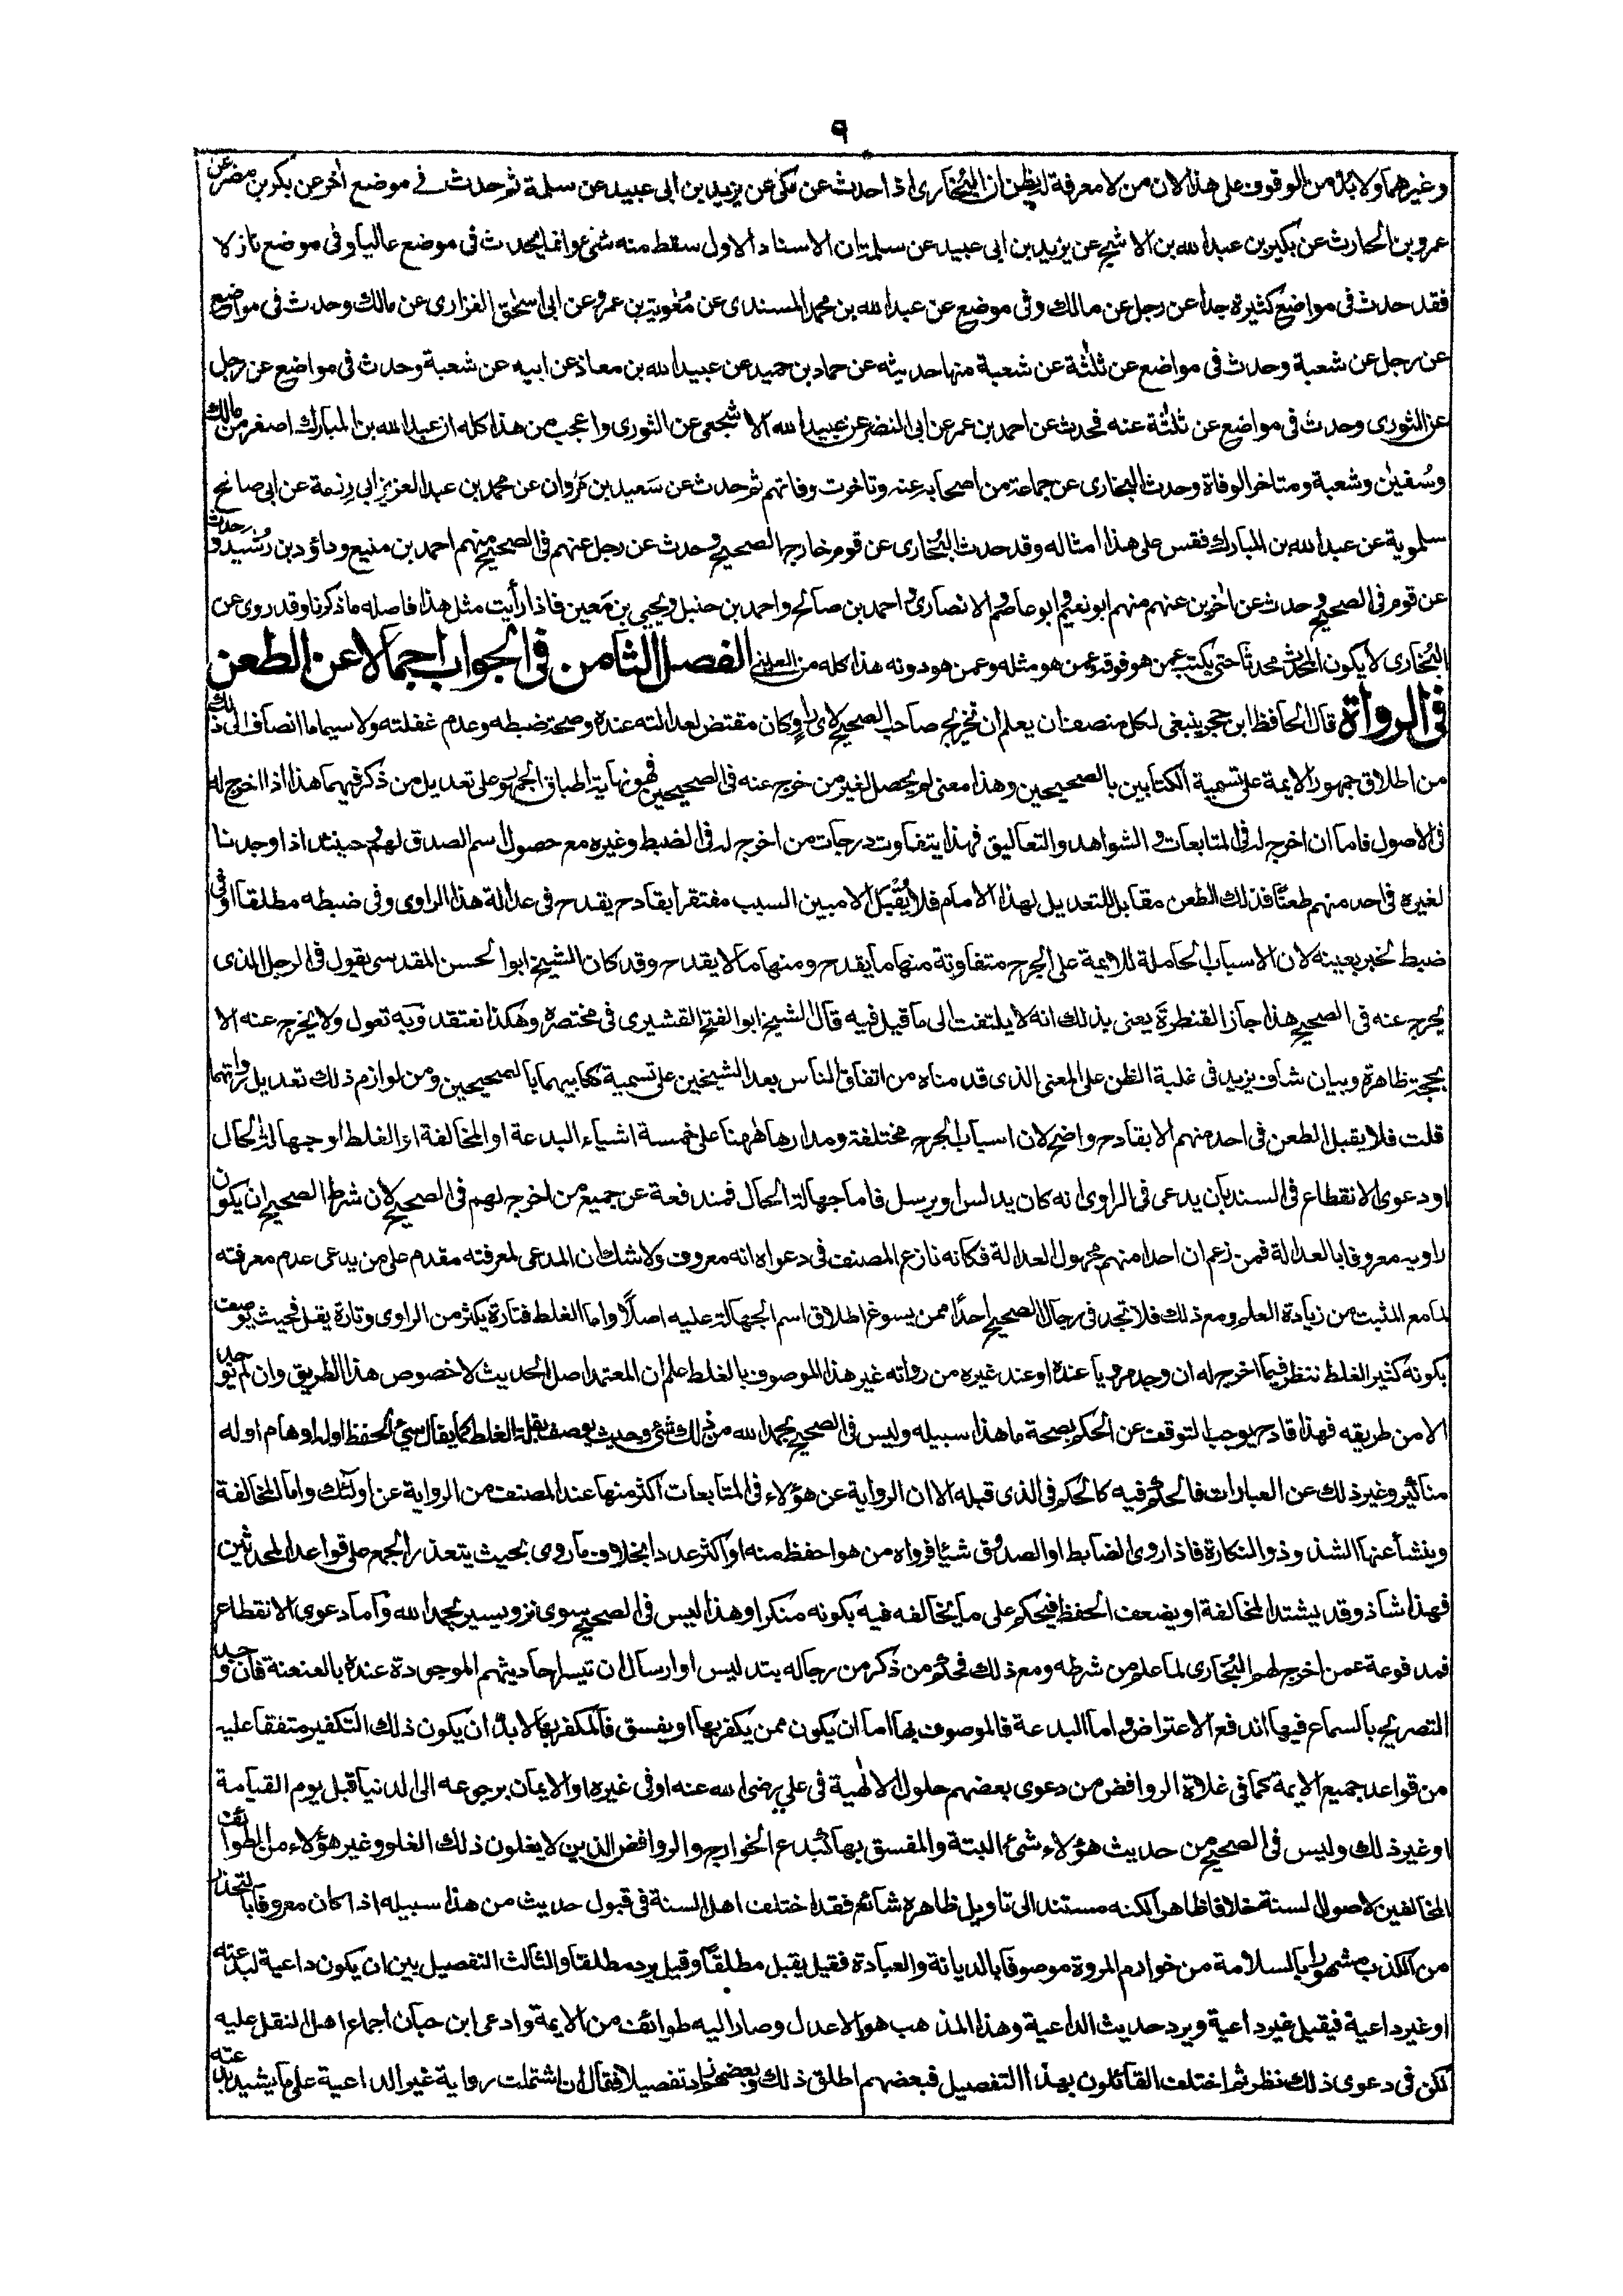 ٩
وغيرهما ولا بد من الوقوف على هذا لان من لا معرفة له يظن ان البخارى اذا حدث عن مكى عن يزيد بن ابى عبيد عن سلمة ثم حدث فى موضع أخر عن بكر بن مضر عن
عمرو بن الحارث عن بكير بن عبد الله بن الاشج عن يزيد بن ابى عبيد عن سلمة ان الاسناد الاول سقط منه شئ وانما يحدث فى موضع عاليا وفى موضع نازلا
فقد حدث فى مواضع كثيرة جدا عن رجل عن مالك وفى موضع عن عبد الله بن محمد المسندى عن مغوية بن عمرو عن ابى اسحٰق الفزارى عن مالك وحدث فى مواضع
عن رجل عن شعبة وحدث فى مواضع عن ثلٰثة عن شعبة منها حديثه عن حماد بن حميد عن عبيد الله بن معاذ عن ابيه عن شعبة وحدث فى مواضع عن رجل
عن الثورى وحدث فى مواضع عن ثلٰثة عنه فحدث عن احمد بن عمر عن ابى النضر عن عبيد الله الاشجعى عن الثورى واعجب من هذا كله ان عبد الله بن المبارك اصغر من مالك
وسُفيٰن وشعبة ومتاخر الوفاة وحدث البخارى عن جماعة من اصحابه عنه وتاخرت وفاتهم ثم حدث عن سَعيد بن مَروان عن محمد بن عبد العزيز ابى رزمة عن ابى صالح
سلموية عن عبد الله بن المبارك فقس على هذا امثاله وقد حدث البُخارى عن قوم خارج الصحيح وحدث عن رجل عنهم فى الصحيح منهم احمد بن منيع وداؤد بن رُشيد وحدث
عن قوم فى الصحيح وحدث عن اٰخرين عنهم منهم ابو نعيم وابو عاصم والانصارى واحمد بن صالح واحمد بن حنبل ويحيى بن مَعين فاذا رأيت مثل هذا فاصله ما ذكرنا وقد روى عن
البُخارى لا يكون المحدث محدثا حتى يكتب عمن هو فوقه وعمن هو مثله وعمن هو دونه هذا كله من العينى الفصل الثامن فى الجواب اجمالا عن الطعن
فى الرواة قال الحافظ ابن حجر ينبغى لكل منصف ان يعلم ان تخريج صاحب الصحيح لاى راوٍ كان مقتض لعدالته عنده وصحة ضبطه وعدم غفلته ولا سيما ما انضاف الى ذلك
من اطلاق جمهور الايمة على تسمية الكتابين بالصحيحين وهذا معنى لم يحصل لغير من خرج عنه فى الصحيحين فهو نهاية اطباق الجمهور على تعديل من ذكر فيهما هذا اذا اخرج له
فى الاصول فاما ان اخرج له فى المتابعات و الشواهد والتعاليق فهذا يتفاوت درجات من اخرج له فى الضبط وغيره مع حصول اسم الصدق لهم وحينئذ اذا وجدنا
لغيره فى احد منهم طعنًا فذلك الطعن مقابل للتعديل لهذا الامام فلا يُقْبل الا مبين السبب مفتقرا بقادح يقدح فى عدالة هذا الراوى وفى ضبطه مطلقا او فى
ضبط لخبر بعينه لان الاسباب الحاملة للايمة على الجرح متفاوتة منها ما يقدح ومنها ما لا يقدح وقد كان الشيخ ابو الحسن المقدسى يقول فى الرجل الذى
يخرج عنه فى الصحيح هذا جاز القنطرة يعنى بذلك انه لا يلتفت الى ما قيل فيه قال الشيخ ابو الفتح القشيرى فى مختصره وهكذا نعتقد وبه نعول ولا يخرج عنه الا
بحجة ظاهرة وبيان شاف يزيد فى غلبة الظن على المعنى الذى قدمناه من اتفاق الناس بعد الشيخين على تسمية كتابيهما بالصحيحين ومن لوازم ذلك تعديل رواتهما
قلت فلا يقبل الطعن فى احد منهم الا بقادح واضح لان اسباب الجرح مختلفة ومدارها ههنا على خمسة اشياء البدعة او المخالفة او الغلط او جهالة الحال
او دعوى الانقطاع فى السند بان يدعى فى الراوى انه كان يدلس او يرسل فاما جهالة الحال فمندفعة عن جميع من اخرج لهم فى الصحيح لان شرط الصحيح ان يكون
راويه معروفا بالعدالة فمن زعم ان احدا منهم مجهول العدالة فكانه نازع المصنف فى دعواه انه معروف ولا شك ان المدعى لمعرفته مقدم على من يدعى عدم معرفته
لما مع المثبت من زيادة العلم ومع ذلك فلا تجد فى رجال الصحيح احدًا ممن يسوغ اطلاق اسم الجهالة عليه اصلًا واما الغلط فتارة يكثر من الراوى وتارة يقل فحيث يوصف
بكونه كثير الغلط ننظر فيما اخرج له ان وجد مرويا عنده او عند غيره من رواته غير هذا الموصوف بالغلط علم ان المعتمد اصل الحديث لا خصوص هذا الطريق وان لم يوجد
الا من طريقه فهذا قادح يوجب التوقف عن الحكم بصحة ما هذا سبيله وليس فى الصحيح بحمد الله من ذلك شئ وحيث يوصف بقلة الغلط كما يقال سئ الحفظ او له اوهام او له
مناكير وغير ذلك عن العبارات فالحكم فيه كالحكم فى الذى قبله الا ان الرواية عن هؤلاء فى المتابعات اكثر منها عند المصنف من الرواية عن اولئك واما المخالفة
وينشأ عنها الشذوذ والنكارة فاذا روى الضابط او الصدوق شيأ فرواه من هو احفظ منه او اكثر عددا بخلاف ما روى بحيث يتعذر الجمع على قواعد المحدثين
فهذا شاذ وقد يشتد المخالفة او يضعف الحفظ فيحكم على ما يخالفه فيه بكونه منكرا وهذا ليس فى الصحيح سوى نزر يسير بحمد الله واما دعوى الانقطاع
فمدفوعة عمن اخرج لهم البُخارى لما علم من شرطه ومع ذلك فحكم من ذكر من رجاله بتدليس او ارسال ان تيسر احاديثهم الموجودة عنده بالعنعنة فان وجد
التصريح بالسماع فيها اندفع الاعتراض واما البدعة فالموصوف بها اما ان يكون ممن يكفر بها او يفسق فالمكفر بها لا بد ان يكون ذلك التكفير متفقا عليه
من قواعد جميع الايمة كما فى غلاة الروافض من دعوى بعضهم حلول الالٰهية فى علي رضى الله عنه او فى غيره او الايمان برجوعه الى الدنيا قبل يوم القيامة
او غير ذلك وليس فى الصحيح من حديث هؤلاء شئ البتة والمفسق بها كبدع الخوارج والروافض الذين لا يغلون ذلك الغلو وغير هؤلاء من الطوائف
المخالفين لاصول السنة خلافا ظاهرا لكنه مستند الى تاويل ظاهره شائع فقد اختلف اهل السنة فى قبول حديث من هذا سبيله اذا كان معروفا بالتحذر
من الكذب مشهورا بالسلامة من خوارم المروة موصوفا بالديانة والعبادة فقيل يقبل مطلقًا وقيل يرد مطلقا والثالث التفصيل بين ان يكون داعية لبدعته
او غير داعية فيقبل غير داعية ويرد حديث الداعية وهذا المذهب هو الاعدل وصار اليه طوائف من الايمة وادعى ابن حبان اجماع اهل النقل عليه
لكن فى دعوى ذلك نظر ثم اختلف القائلون بهذا التفصيل فبعضهم اطلق ذلك وبعضهم زاد تفصيلا فقال ان اشتملت رواية غير الداعية على ما يشيد بدعته